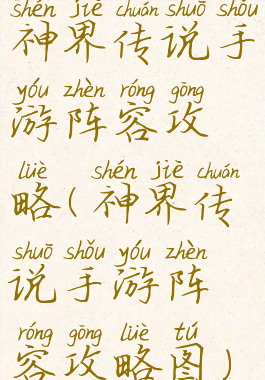 shén jiè chuán shuō shǒu
神界传说手
yóu zhèn róng gōng
游阵容攻
lüè shén jiè chuán
略(神界传
shuō shǒu yóu zhèn
说手游阵
róng gōng lüè tú
容攻略图)